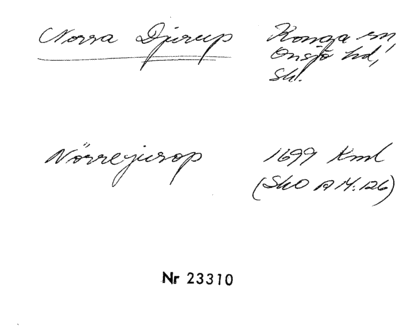 Norra Djurup Konga sn,
Onsjö hd,
Sk.
Nörrejurop 1699 Kml
(SkO A 14.126)
Nr 23310